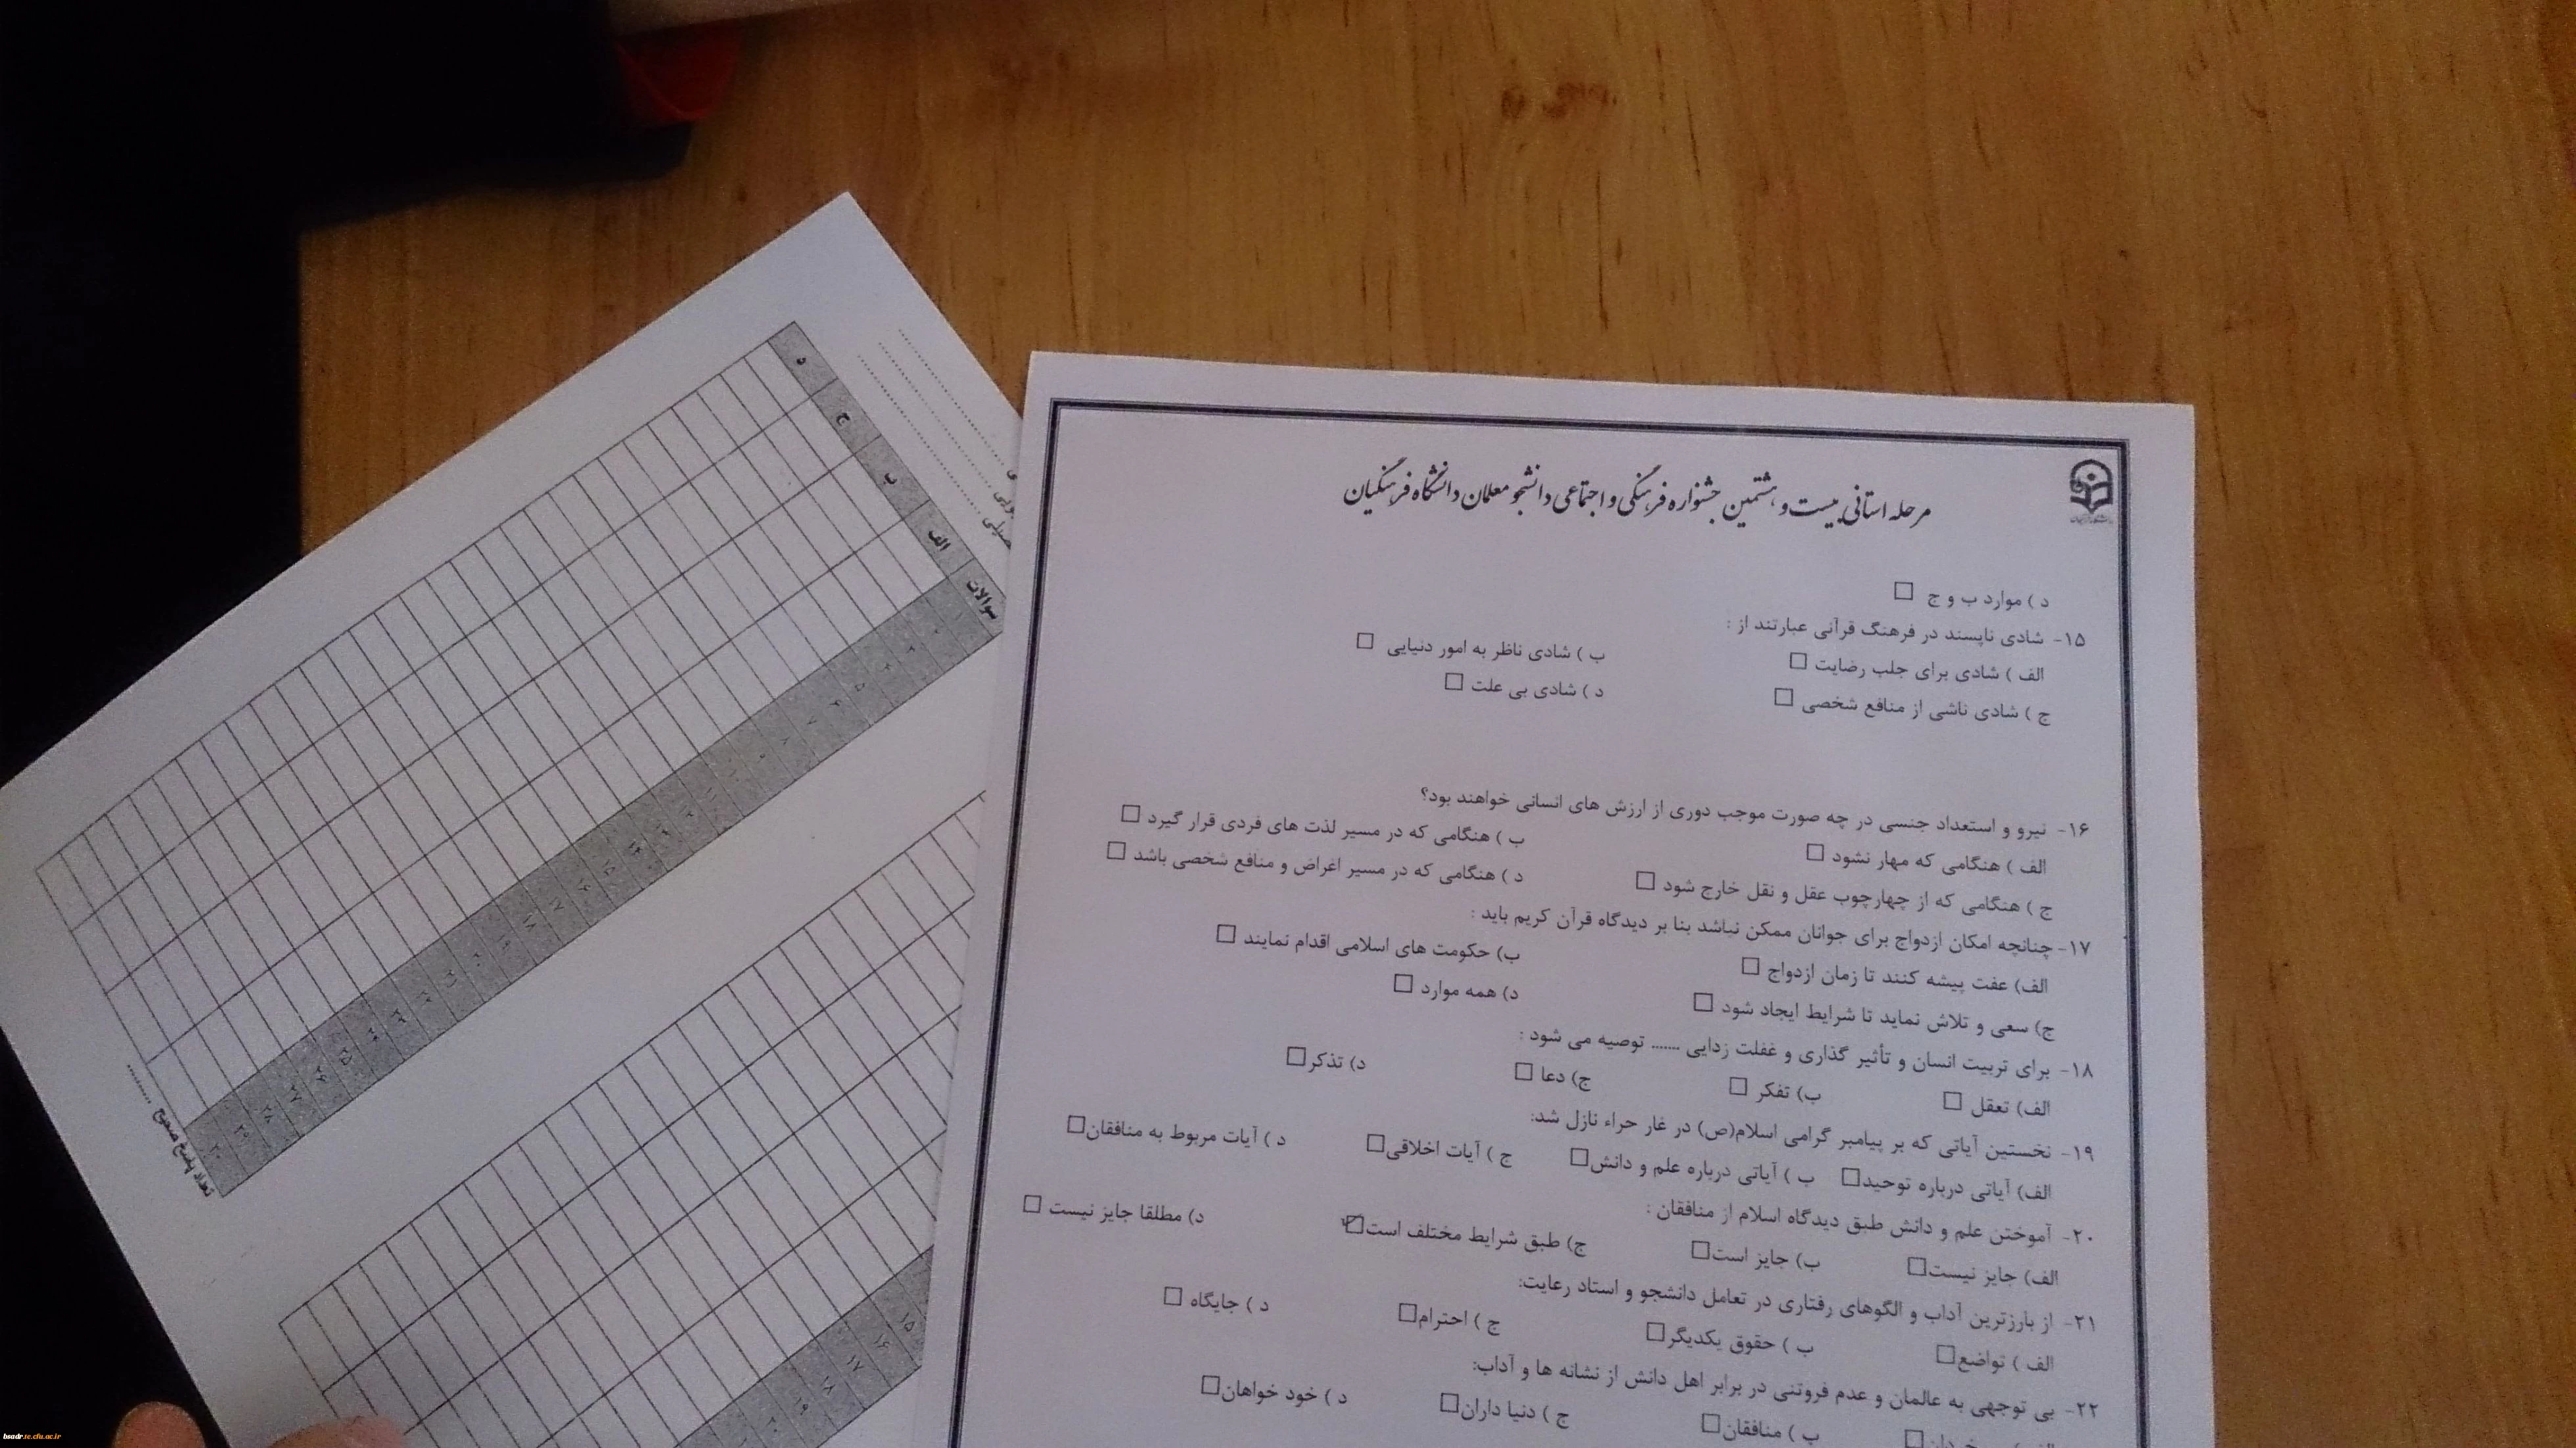 مرحله استانی بیست و هشتمین جشنواره فرهنگی و اجتماعی دانشجو معلمان دانشگاه فرهنگیان
د ) موارد ب و ج
۱۵- شادی ناپسند در فرهنگ قرآنی عبارتند از :
الف ) شادی برای جلب رضایت ب ) شادی ناظر به امور دنیایی
ج ) شادی ناشی از منافع شخصی د ) شادی بی علت
۱۶- نیرو و استعداد جنسی در چه صورت موجب دوری از ارزش های انسانی خواهند بود؟
الف ) هنگامی که مهار نشود ب ) هنگامی که در مسیر لذت های فردی قرار گیرد
ج ) هنگامی که از چهارچوب عقل و نقل خارج شود د ) هنگامی که در مسیر اغراض و منافع شخصی باشد
۱۷- چنانچه امکان ازدواج برای جوانان ممکن نباشد بنا بر دیدگاه قرآن کریم باید :
الف) عفت پیشه کنند تا زمان ازدواج ب) حکومت های اسلامی اقدام نمایند
ج) سعی و تلاش نماید تا شرایط ایجاد شود د) همه موارد
۱۸- برای تربیت انسان و تأثیر گذاری و غفلت زدایی ....... توصیه می شود :
الف) تعقل ب) تفکر ج) دعا د) تذکر
۱۹- نخستین آیاتی که بر پیامبر گرامی اسلام(ص) در غار حراء نازل شد:
الف) آیاتی درباره توحید ب ) آیاتی درباره علم و دانش ج ) آیات اخلاقی د ) آیات مربوط به منافقان
۲۰- آموختن علم و دانش طبق دیدگاه اسلام از منافقان :
الف) جایز نیست ب) جایز است ج) طبق شرایط مختلف است د) مطلقا جایز نیست
۲۱- از بارزترین آداب و الگوهای رفتاری در تعامل دانشجو و استاد رعایت:
الف ) تواضع ب ) حقوق یکدیگر ج ) احترام د ) جایگاه
۲۲- بی توجهی به عالمان و عدم فروتنی در برابر اهل دانش از نشانه ها و آداب:
ب ) منافقان ج ) دنیا داران د ) خود خواهان
سوالات الف ب ج د
۱۵
۱۶
۱۷
۱۸
۱۹
تعداد پاسخ صحیح ..........
bsadr.te.cfu.ac.ir